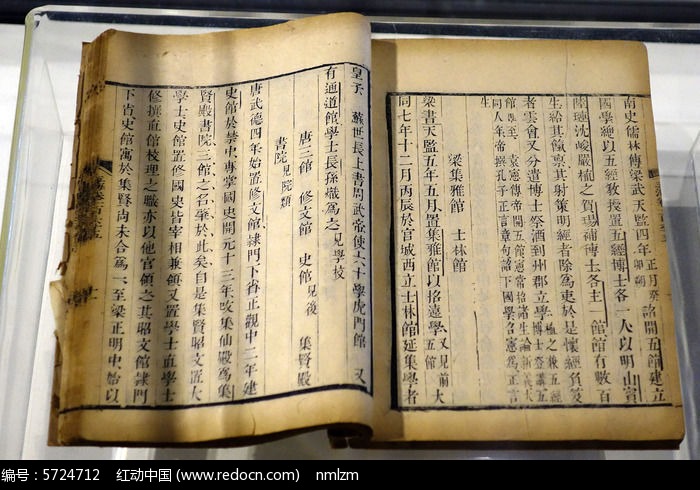 南史儒林傳梁武天監四年正月癸卯朔詔開五館建立
國學總以五經教授置五經博士各一人以明山賓
陸璉沈峻嚴植之賀瑒補博士各主一館館有數百
生給其餼稟其射策明經者除爲吏於是懷經負笈
者雲會又分遣博士祭酒到州郡立學
生
梁集雅館 士林館
梁書天監五年五月置集雅館以招遠學又見前大
同七年十二月丙辰於宮城西立士林館延集學者
皇子 蘇世長上書周武帝使六十學虎門館 又
有通道館學士長孫熾爲之見學校
唐三館 修文館 史館見後 集賢殿
書院見院類
唐武德四年始置修文館隸門下省正觀中二年建
史館於禁中專掌國史開元十三年改集仙殿爲集
賢殿書院三館之名肇於此矣自是集賢昭文置大
學士史館置修國史皆宰相兼領又置學士直學士
修撰直館校理之職亦以他官領之其昭文館隸門
下省史館寓於集賢尚未合爲一至梁正明中始以
編号：5724712 红动中国 (www.redocn.com) nmlzm